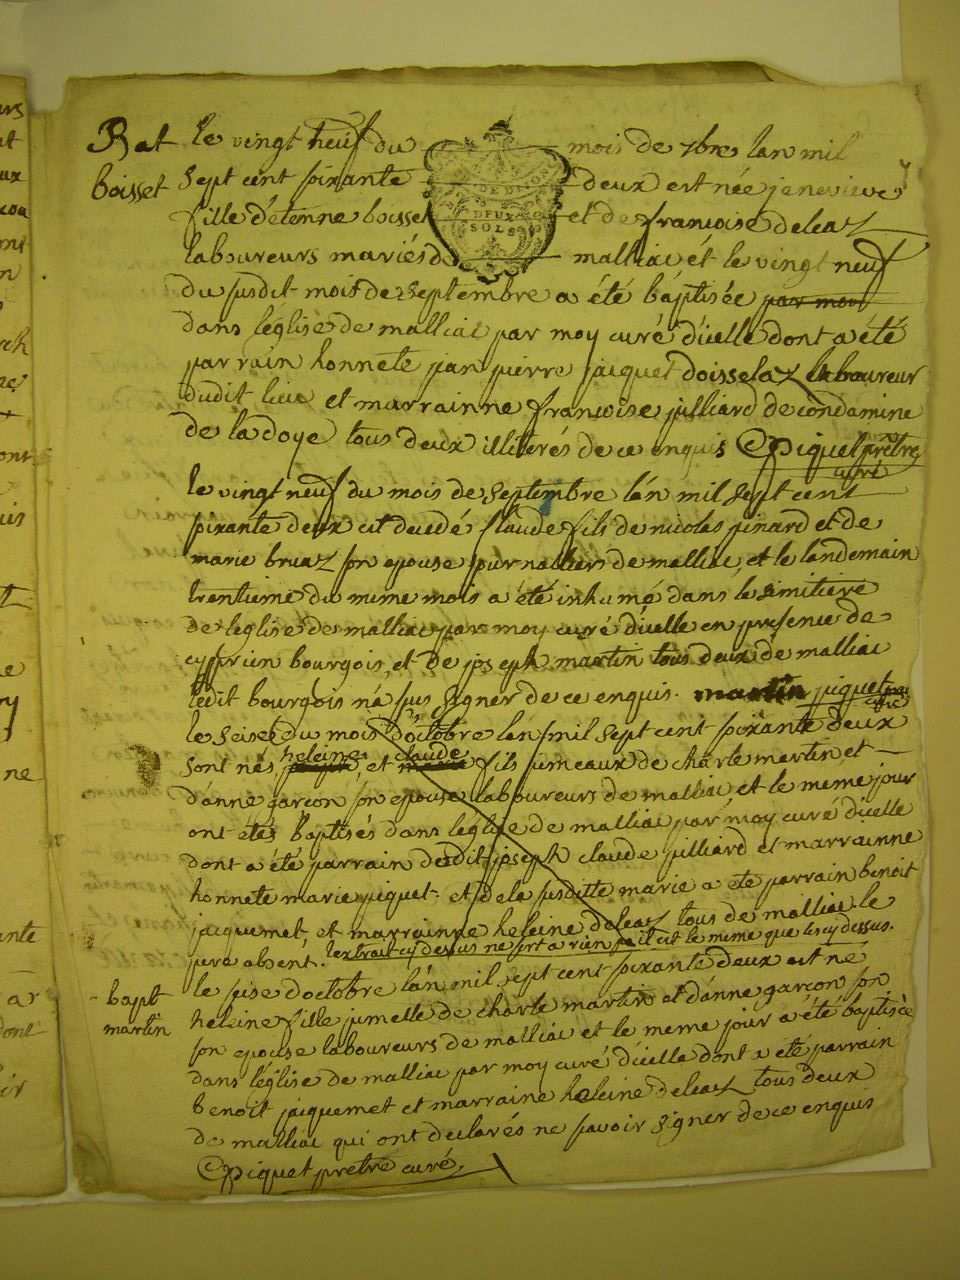 Bat le vingt neuf du mois de 7bre lan mil
boisset sept cent soixante deux est née jenevieve
DEUX
SOLS
fille d'étienne boisset et de francoise deleaz
laboureurs mariés de malliac et le vingt neuf
du susdit mois de septembre a été baptisée par moy
dans l'église de malliac par moy curé d'icelle dont a été
parrain honnete jean pierre jacquet doisselaz laboureur
dudit lieu et marrainne francoise julliard de condamine
de la doye tous deux illiterés de ce enquis C piquet prêtre
curé
le vingt neuf du mois de septembre l'an mil sept cent
soixante deux est decedé claude fils de nicolas pinard et de
marie bruaz son epouse journalliers de malliac, et le landemain
trentieme du meme mois a été inhumé dans le simitiere
de leglise de malliac par moy curé d'icelle en presence de
cypprien bourgois, et de joseph martin tous deux de malliac
ledit bourgois n'a sus signer de ce enquis. martin piquet
curé
le seise du mois d'octobre lan mil sept cent soixante deux
heleine claude
sont nés et fils jumeaux de charle martin et
d'anne garçon son epouse laboureurs de malliac, et le meme jour
ont étés baptisés dans l'église de malliac par moy curé d'icelle
dont a été parrain dudit joseph claude julliard et marrainne
honnete marie piquet et de la susditte marie a ete parrain benoit
jacquemet, et marrainne heleine deleaz tous de malliac le
pere absent. lextrait cy dessus ne sert a rien
le sise d'octobre l'an mil sept cent soixante deux est né
bapt heleine fille jumelle de charle martin et d'anne garçon son
martin son epouse laboureurs de malliac et le meme jour a été baptisée
dans l'église de malliac par moy curé d'icelle dont a été parrain
benoit jacquemet et marraine heleine deleaz tous deux
de malliac qui ont declarés ne savoir signer de ce enquis
C piquet pretre curé